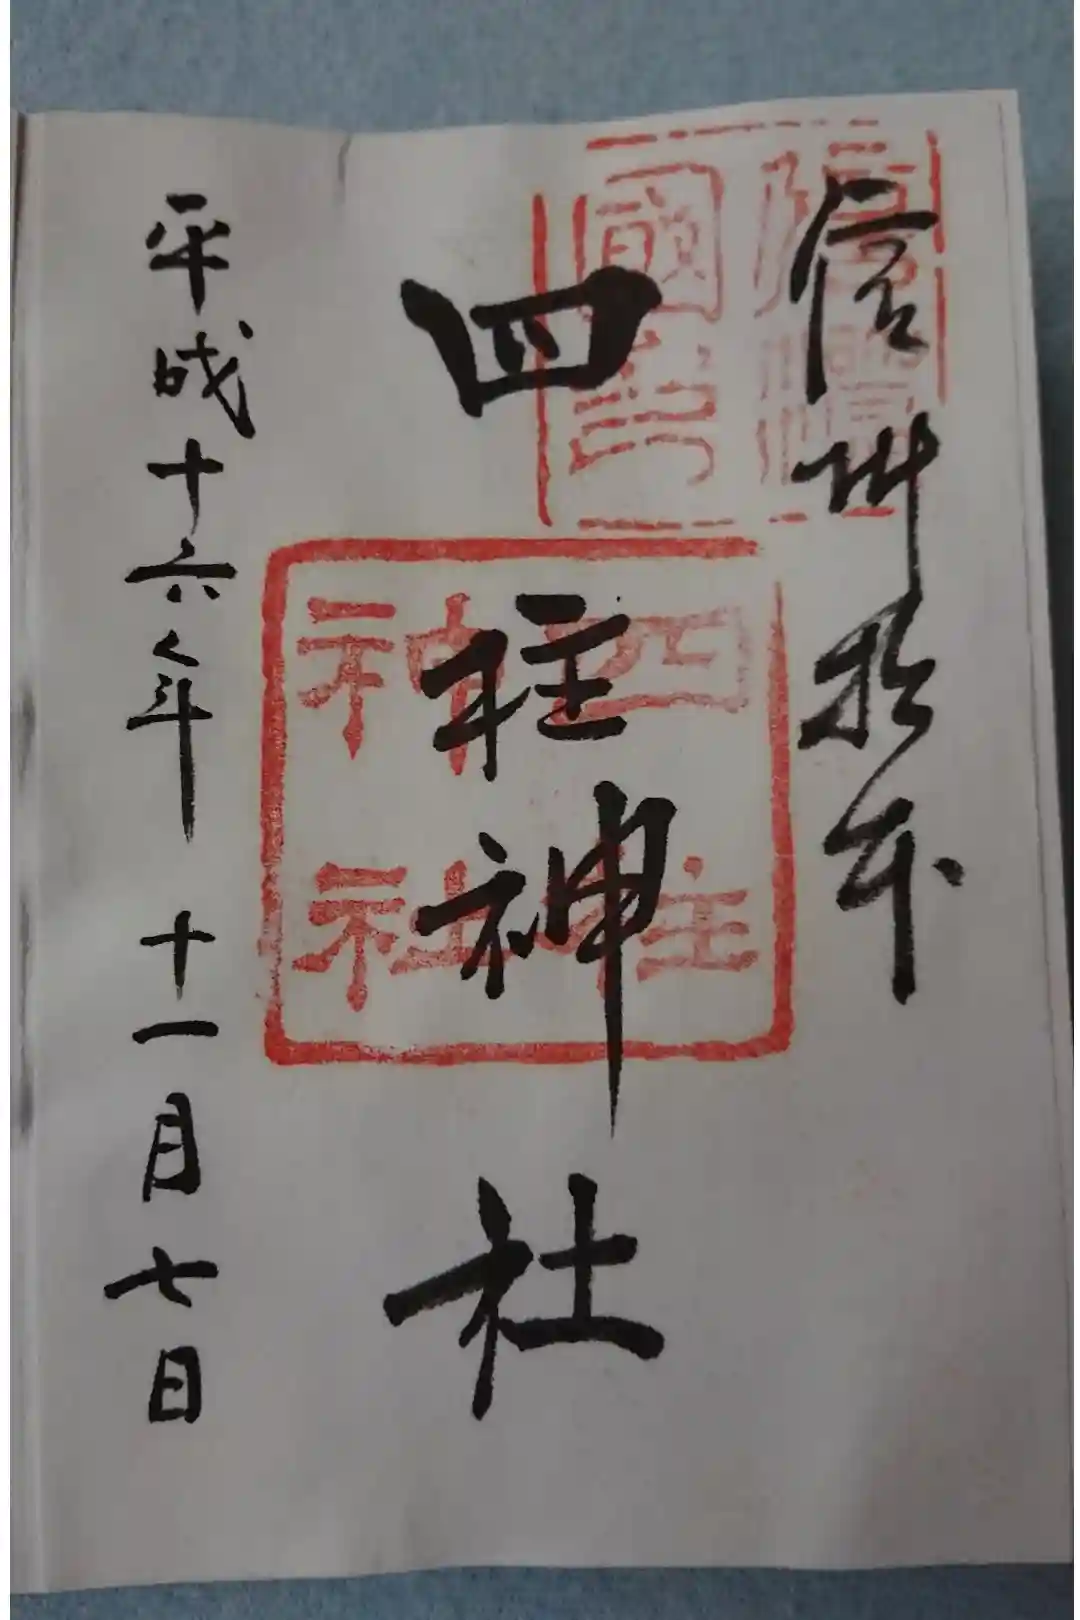 信州松本
四柱神社
平成十六年 十一月七日
信濃
國
四柱
神社